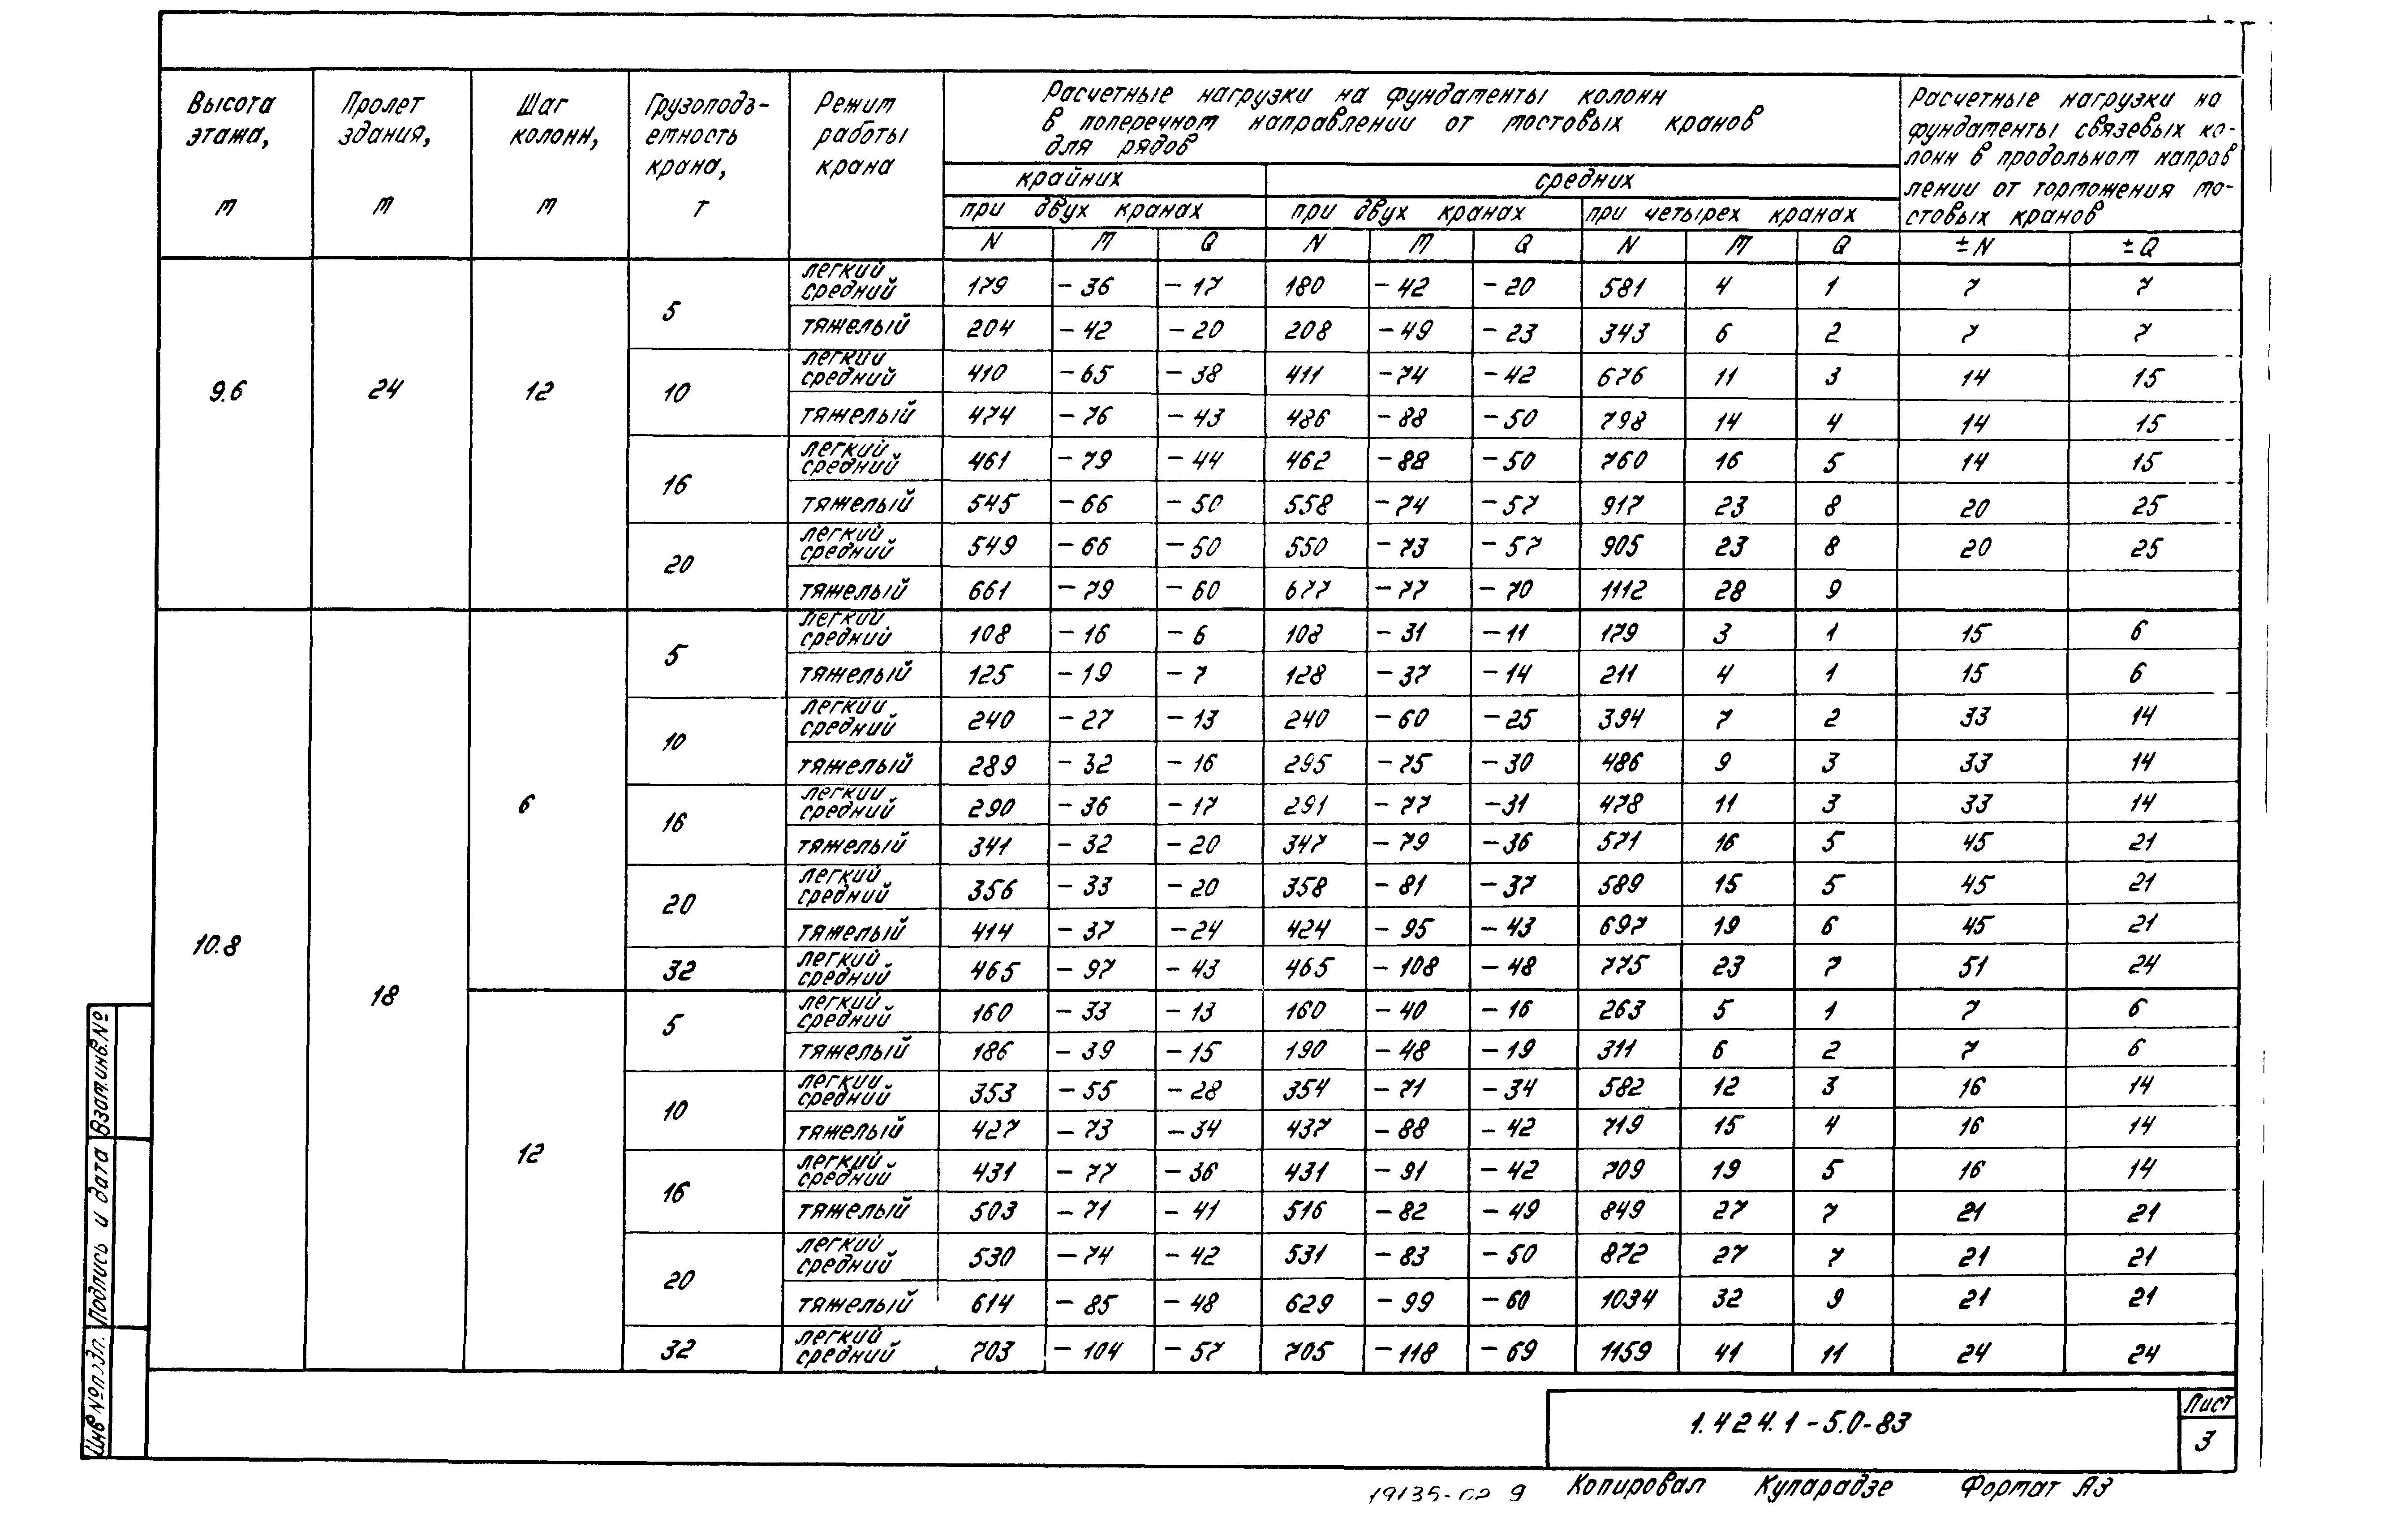 Высота этажа, м
Пролет здания, м
Шаг колонн, м
Грузоподъ-емность крана, т
Режим работы крана
Расчетные нагрузки на фундаменты колонн
в поперечном направлении от мостовых кранов
для рядов
Расчетные нагрузки на
фундаменты связевых ко-
лонн в продольном направ
лении от торможения мо-
стовых кранов
крайних средних
при двух кранах при двух кранах при четырех кранах
N M Q N M Q N M Q ±N ±Q
9.6 24 12
5 легкий средний 179 -36 -17 180 -42 -20 581 4 1 7 7
тяжелый 204 -42 -20 208 -49 -23 343 6 2 7 7
10 легкий средний 410 -65 -38 411 -74 -42 676 11 3 14 15
тяжелый 474 -76 -43 486 -88 -50 798 14 4 14 15
16 легкий средний 461 -79 -44 462 -88 -50 760 16 5 14 15
тяжелый 545 -66 -50 558 -74 -57 917 23 8 20 25
20 легкий средний 549 -66 -50 550 -73 -57 905 23 8 20 25
тяжелый 661 -79 -60 677 -77 -70 1112 28 9
10.8 18 6
5 легкий средний 108 -16 -6 108 -31 -11 179 3 1 15 6
тяжелый 125 -19 -7 128 -37 -14 211 4 1 15 6
10 легкий средний 240 -27 -13 240 -60 -25 394 7 2 33 14
тяжелый 289 -32 -16 295 -75 -30 486 9 3 33 14
16 легкий средний 290 -36 -17 291 -77 -31 478 11 3 33 14
тяжелый 341 -32 -20 347 -79 -36 571 16 5 45 21
20 легкий средний 356 -33 -20 358 -81 -37 589 15 5 45 21
тяжелый 414 -37 -24 424 -95 -43 697 19 6 45 21
32 легкий средний 465 -97 -43 465 -108 -48 775 23 7 51 24
12
5 легкий средний 160 -33 -13 160 -40 -16 263 5 1 7 6
тяжелый 186 -39 -15 190 -48 -19 311 6 2 7 6
10 легкий средний 353 -55 -28 354 -71 -34 582 12 3 16 14
тяжелый 427 -73 -34 437 -88 -42 719 15 4 16 14
16 легкий средний 431 -77 -36 431 -91 -42 709 19 5 16 14
тяжелый 503 -71 -41 516 -82 -49 849 27 7 21 21
20 легкий средний 530 -74 -42 531 -83 -50 872 27 7 21 21
тяжелый 614 -85 -48 629 -99 -60 1034 32 9 21 21
32 легкий средний 703 -104 -57 705 -118 -69 1159 41 11 24 24
Инв №подл. Подпись и дата Взам.инв.№
1.424.1-5.0-83
Лист
3
19135-02 9 Копировал Купарадзе Формат А3